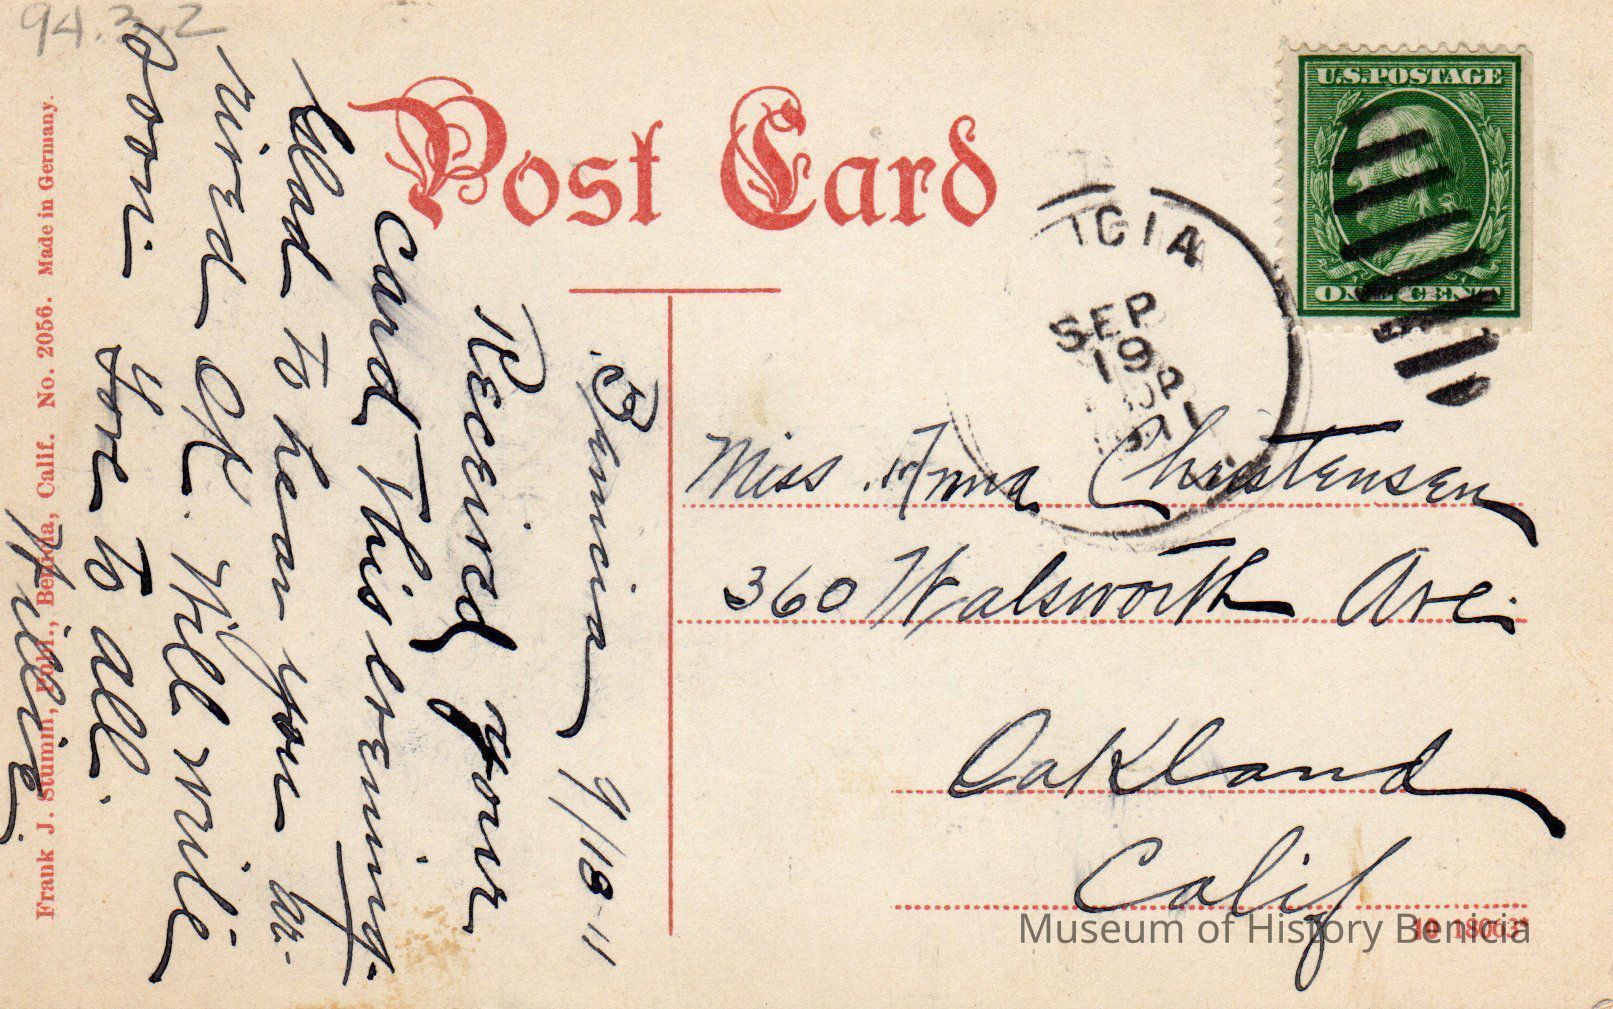 94.3.2
Post Card
U.S. POSTAGE
ONE CENT
ICIA
SEP
19
Benicia 9/18-11
Received your
card this evening.
Glad to hear you ar-
rived OK. Will write
soon. Love to all.
Nellie.
Miss Anna Christensen
360 Walsworth Ave.
Oakland
Calif
Frank J. Stumm, Publ., Benicia, Calif. No. 2056. Made in Germany.
Museum of History Benicia